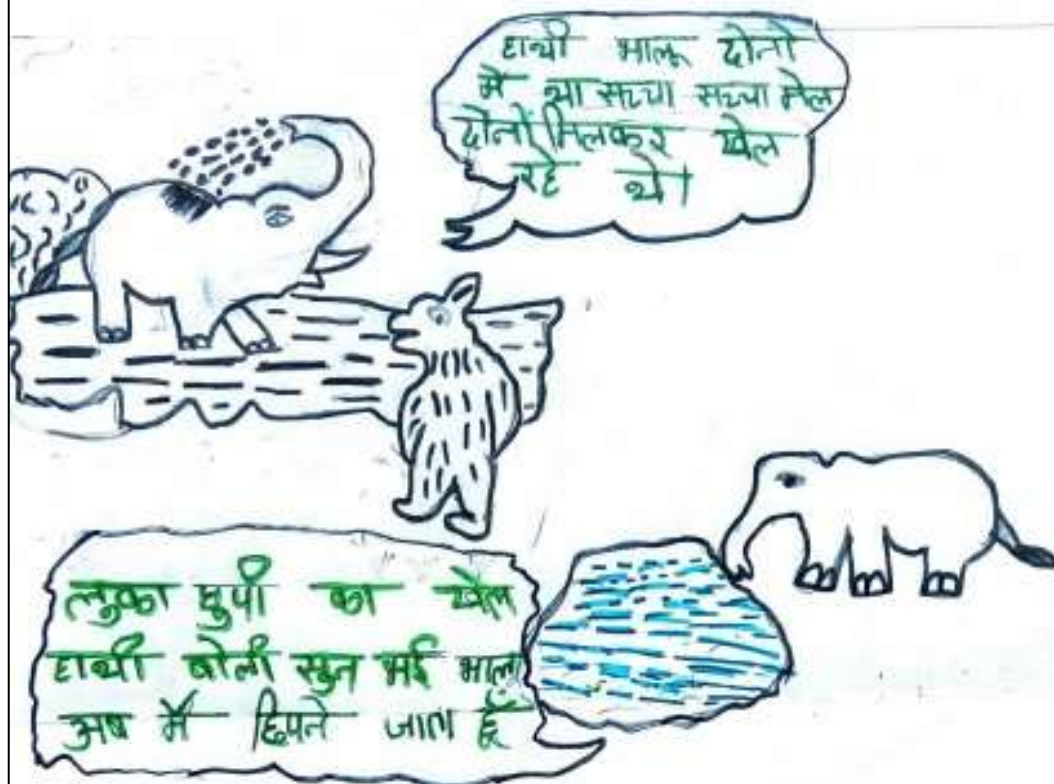 हाथी भालू दोनों
में था सच्चा सच्चा मेल
दोनों मिलकर खेल
रहे थे।
लुका छुपी का खेल
हाथी बोली सुन भई भालू
अब मैं छिपने जाता हूँ